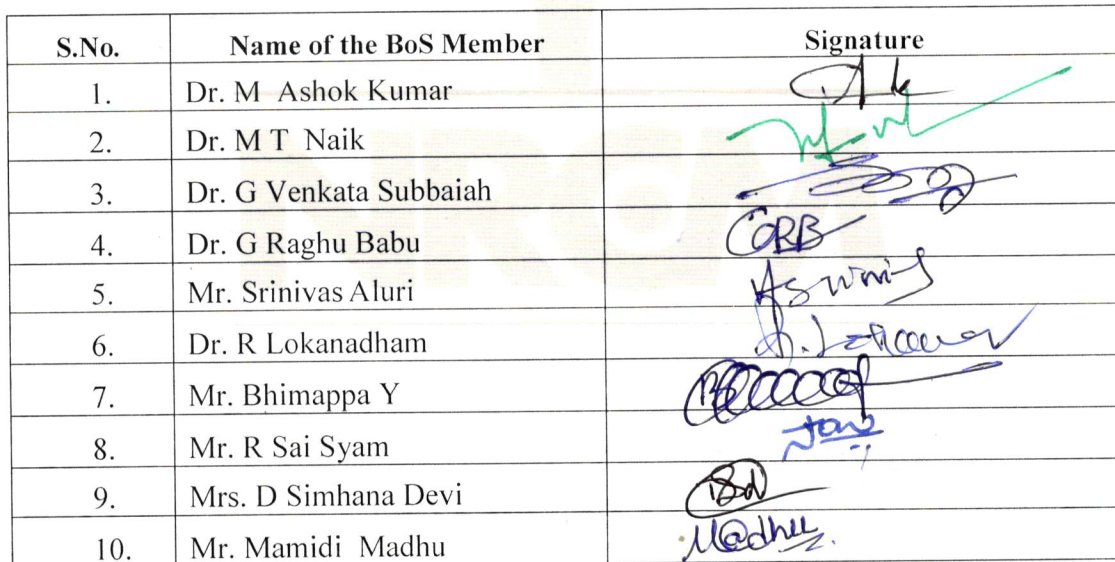 S.No. Name of the BoS Member Signature
1. Dr. M Ashok Kumar
2. Dr. M T Naik
3. Dr. G Venkata Subbaiah
4. Dr. G Raghu Babu GRB
5. Mr. Srinivas Aluri
6. Dr. R Lokanadham
7. Mr. Bhimappa Y
8. Mr. R Sai Syam
9. Mrs. D Simhana Devi
10. Mr. Mamidi Madhu M@dhu
NRCM